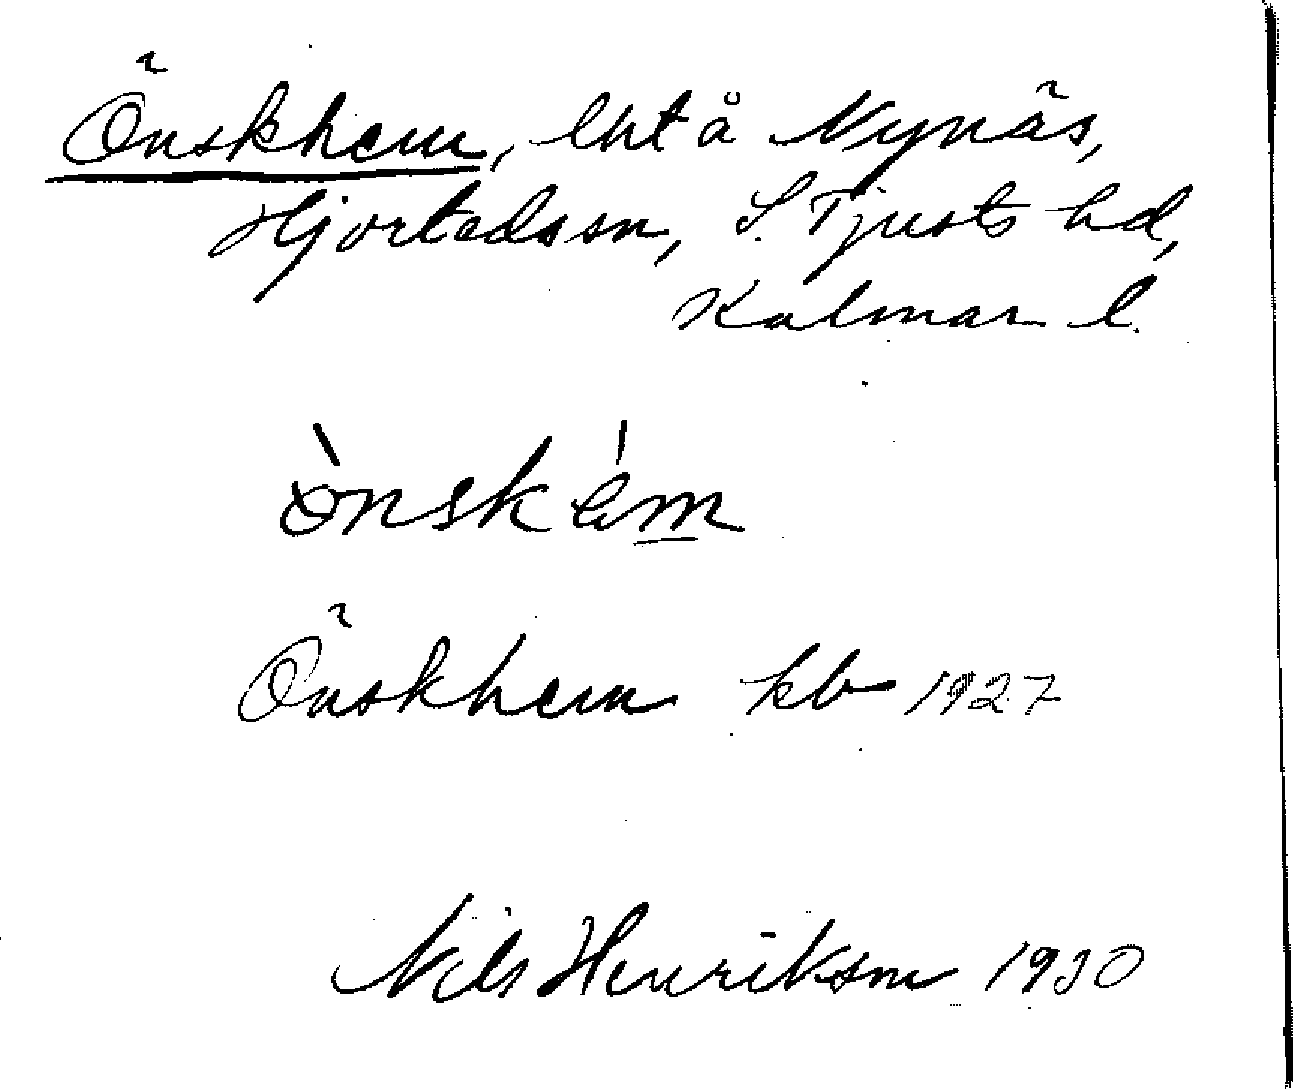 Önskhem, lht å Nynäs,
Hjorteds sn, S. Tjusts hd,
Kalmar l.
ònském
Önskhem kb 1927
Nils Henrikson 1930